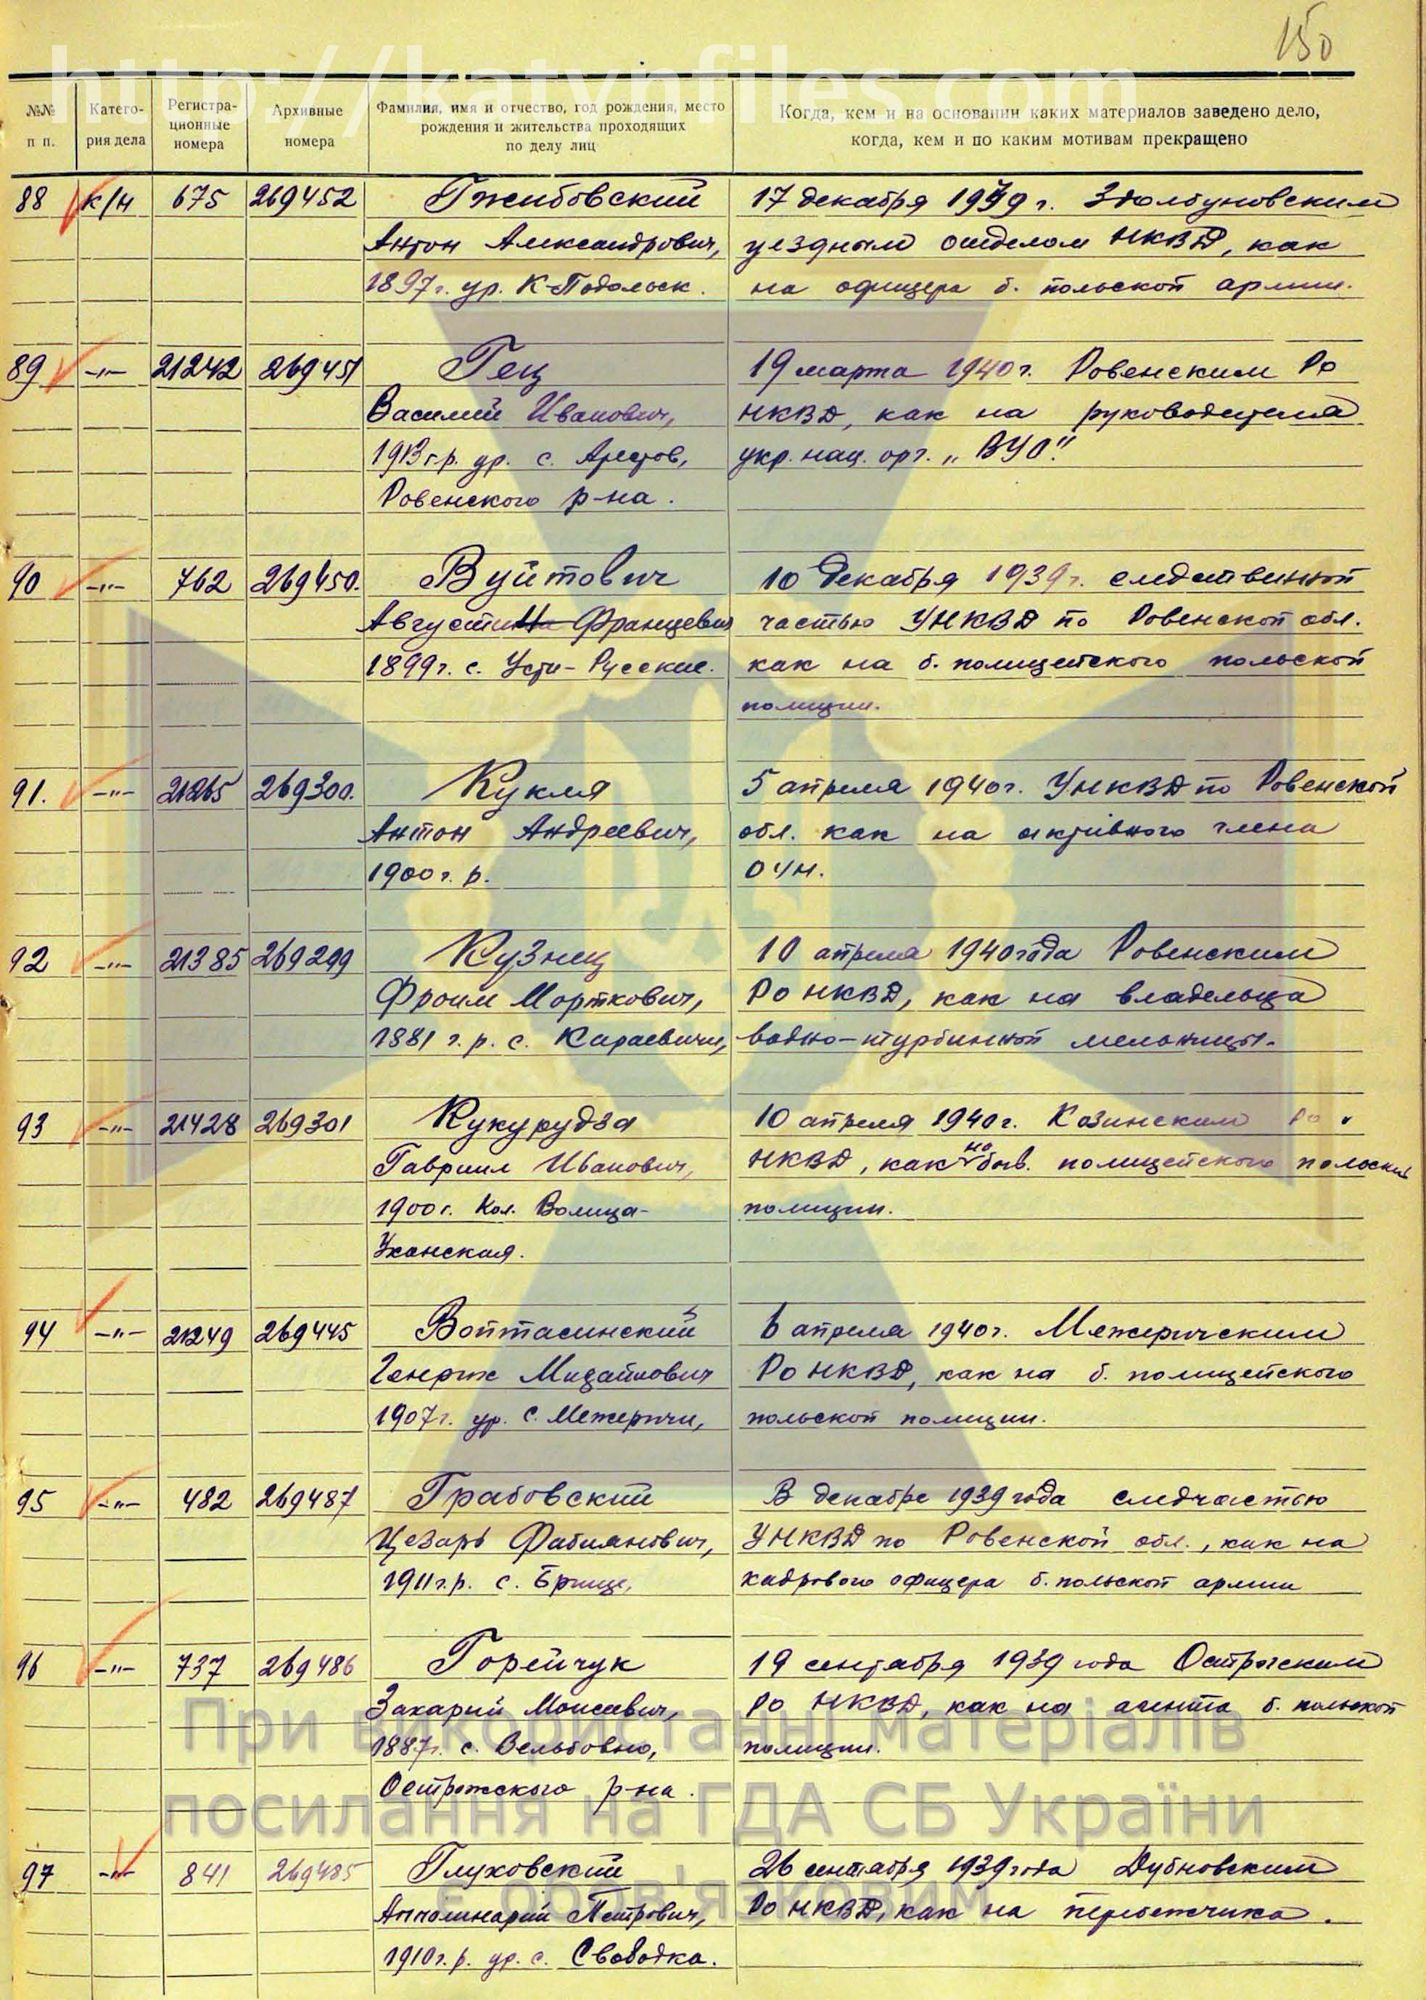 150
http://katynfiles.com
№№ п п.
Катего-
рия дела
Регистра-
ционные
номера
Архивные
номера
Фамилия, имя и отчество, год рождения, место
рождения и жительства проходящих
по делу лиц
Когда, кем и на основании каких материалов заведено дело,
когда, кем и по каким мотивам прекращено
88 к/н 675 269452 Гжибовский 17 декабря 1939 г. Здолбуновским
Антон Александрович, уездным отделом НКВД, как
1897г. ур. К-Подольск. на офицера б. польской армии.
89 -"- 21242 269451 Гец 19 марта 1940г. Ровенским РО
Василий Иванович, НКВД, как на руководителя
1913г.р. ур. с. Арестов, укр. нац. орг. „ВУО".
Ровенского р-на.
90 -"- 762 269450. Вуйтович 10 декабря 1939г. следственной
Августин Францевич частью УНКВД по Ровенской обл.
1899г. с. Усти-Русские. как на б. полицейского польской
полиции.
91. -"- 21265 269300. Кукля 5 апреля 1940г. УНКВД по Ровенской
Антон Андреевич, обл. как на активного члена
1900г. р. ОУН.
92 -"- 21385 269299 Кузнец 10 апреля 1940 года Ровенским
Фроим Морткович, РО НКВД, как на владельца
1881 г. р. с. Караевичи, водно-турбинной мельницы.
93 -"- 21428 269301 Кукурудза 10 апреля 1940г. Козинским РО
Гавриил Иванович, НКВД, как на быв. полицейского польской
1900г. Кол. Волица- полиции.
Уханская.
94 -"- 21249 269445 Войтасинский 6 апреля 1940г. Межеричским
Генрик Михайлович РО НКВД, как на б. полицейского
1907г. ур. с. Межеричи, польской полиции.
95 -"- 482 269487 Грабовский В декабре 1939 года следчастью
Цезарь Фабианович, УНКВД по Ровенской обл., как на
1911г.р. с. кадрового офицера б. польской армии
96 -"- 737 269486 Горейчук 19 сентября 1939 года Острогским
Захарий Моисеевич, РО НКВД, как на агента б. польской
1887г. с. Вельбовно, полиции.
Острожского р-на.
97 -"- 841 269485 Глуховский 26 сентября 1939 года Дубновским
Апполинарий Петрович, РО НКВД, как на перебежчика.
1910г. р. ур. с. Свободка.
При використанні матеріалів
посилання на ГДА СБ України
є обов'язковим